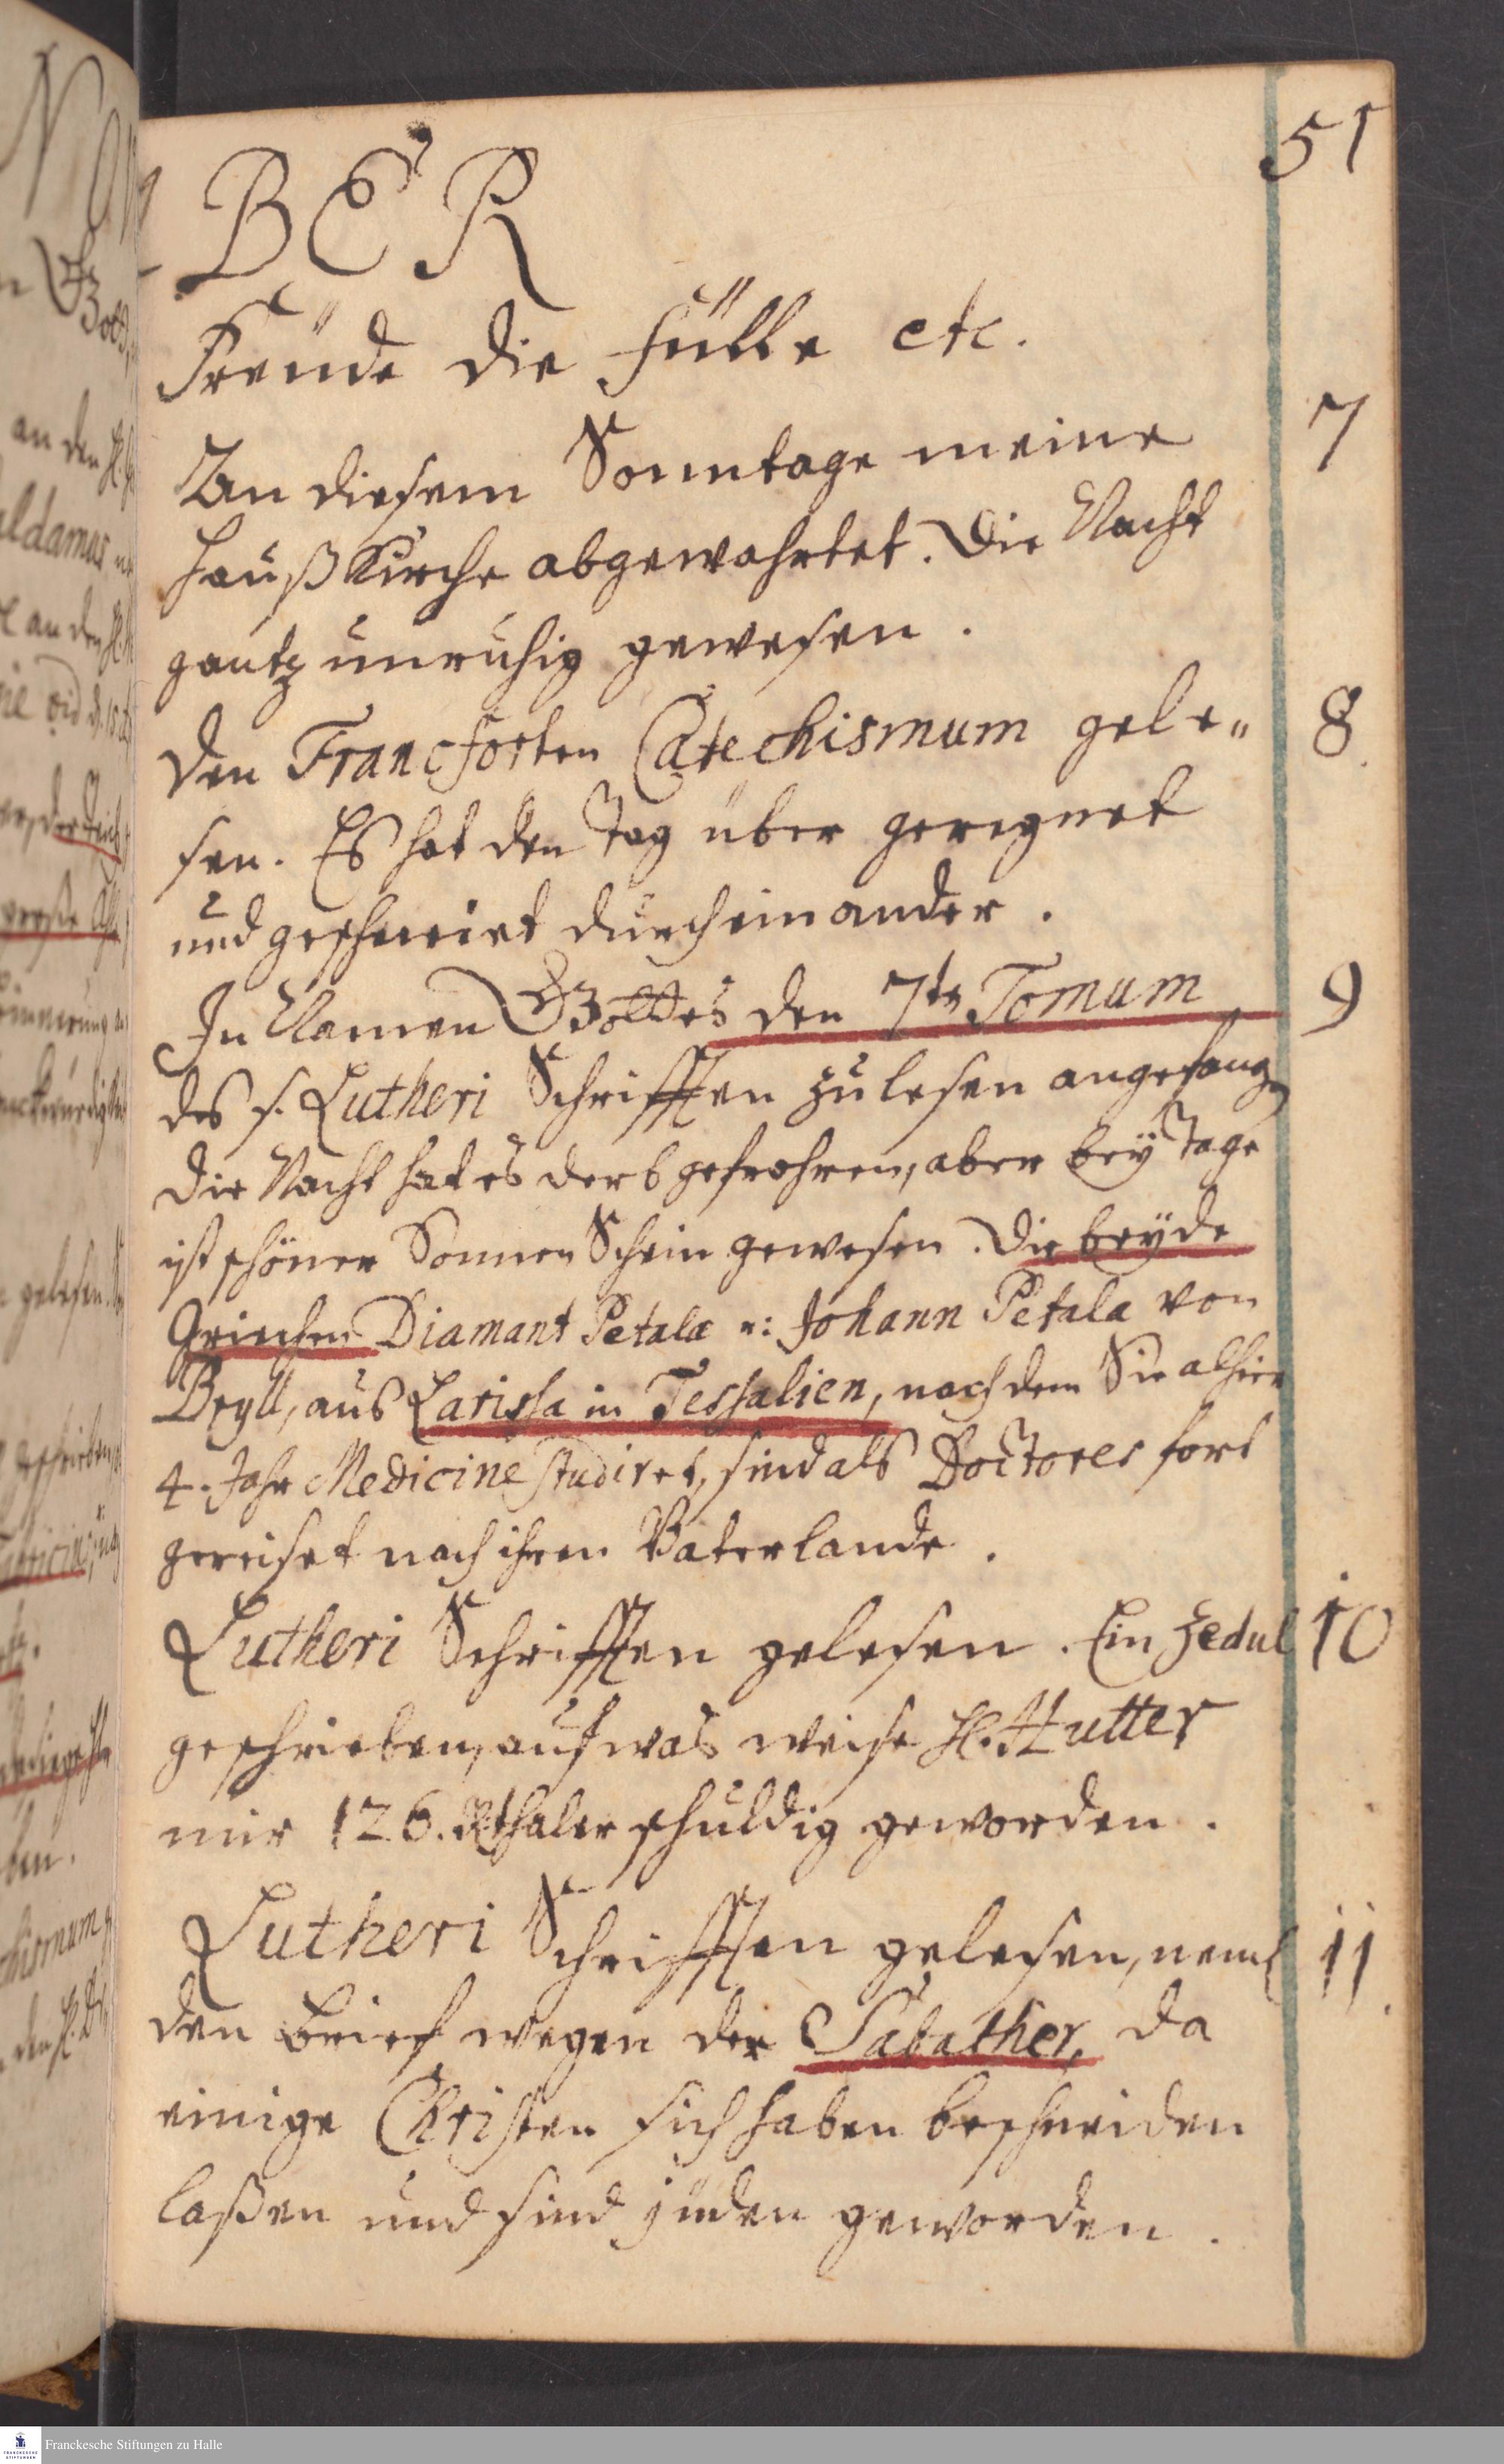 51
BER
Freude die Fülle etc.
An diesem Sonntage meine 7
Hauß Kirche abgewahrtet. Die Nacht
gantz unruhig gewesen.
Den Francforten Catechismum gele„ 8.
sen. Es hat den Tag über geregnet
und geschneiet durcheinander.
In Namen Gottes den 7tn Tomum 9
des s. Lutheri Schrifften zulesen angefang
Die Nacht hat es derb gefrohren, aber beÿ Tage
ist schöner Sonnen Schein gewesen. Die beÿde
Griechen Diamant Petala u: Johann Petala von
aus Larissa in Tessalien, nach dem Sie alhier
4. Jahr Medicine studiret, sind als Doctores fort
gereiset nach ihren Vaterlande.
Lutheri Schrifften gelesen. Ein Zedul 10
geschrieben, auf was weise H. Hutter
mir 126. Rthaler schuldig geworden.
Lutheri Schrifften gelesen, neml 11.
den Brief wegen der Sabather, da
einige Christen sich haben beschneiden
laßen und sind juden geworden.
Franckesche Stiftungen zu Halle